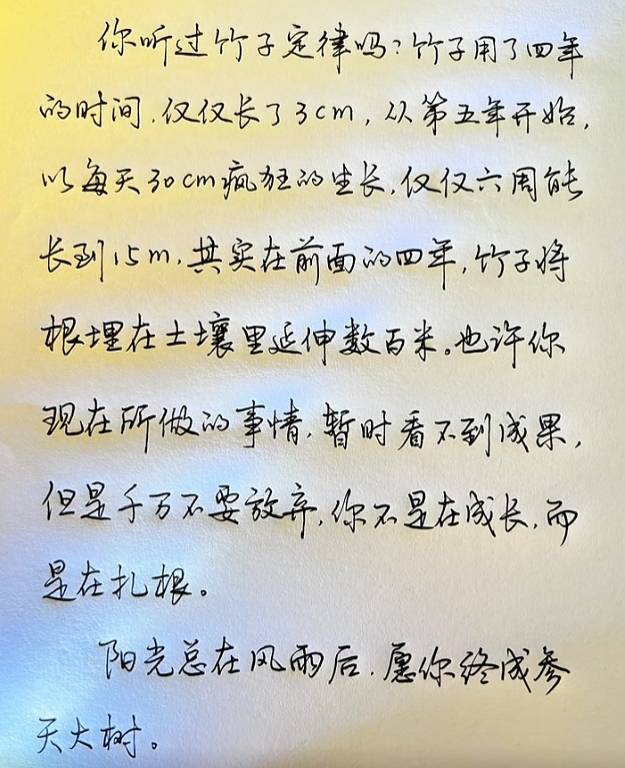 你听过竹子定律吗？竹子用了四年
的时间，仅仅长了3cm，从第五年开始，
以每天30cm疯狂的生长，仅仅六周能
长到15m，其实在前面的四年，竹子将
根埋在土壤里延伸数百米。也许你
现在所做的事情，暂时看不到成果，
但是千万不要放弃，你不是在成长，而
是在扎根。
阳光总在风雨后，愿你终成参
天大树。